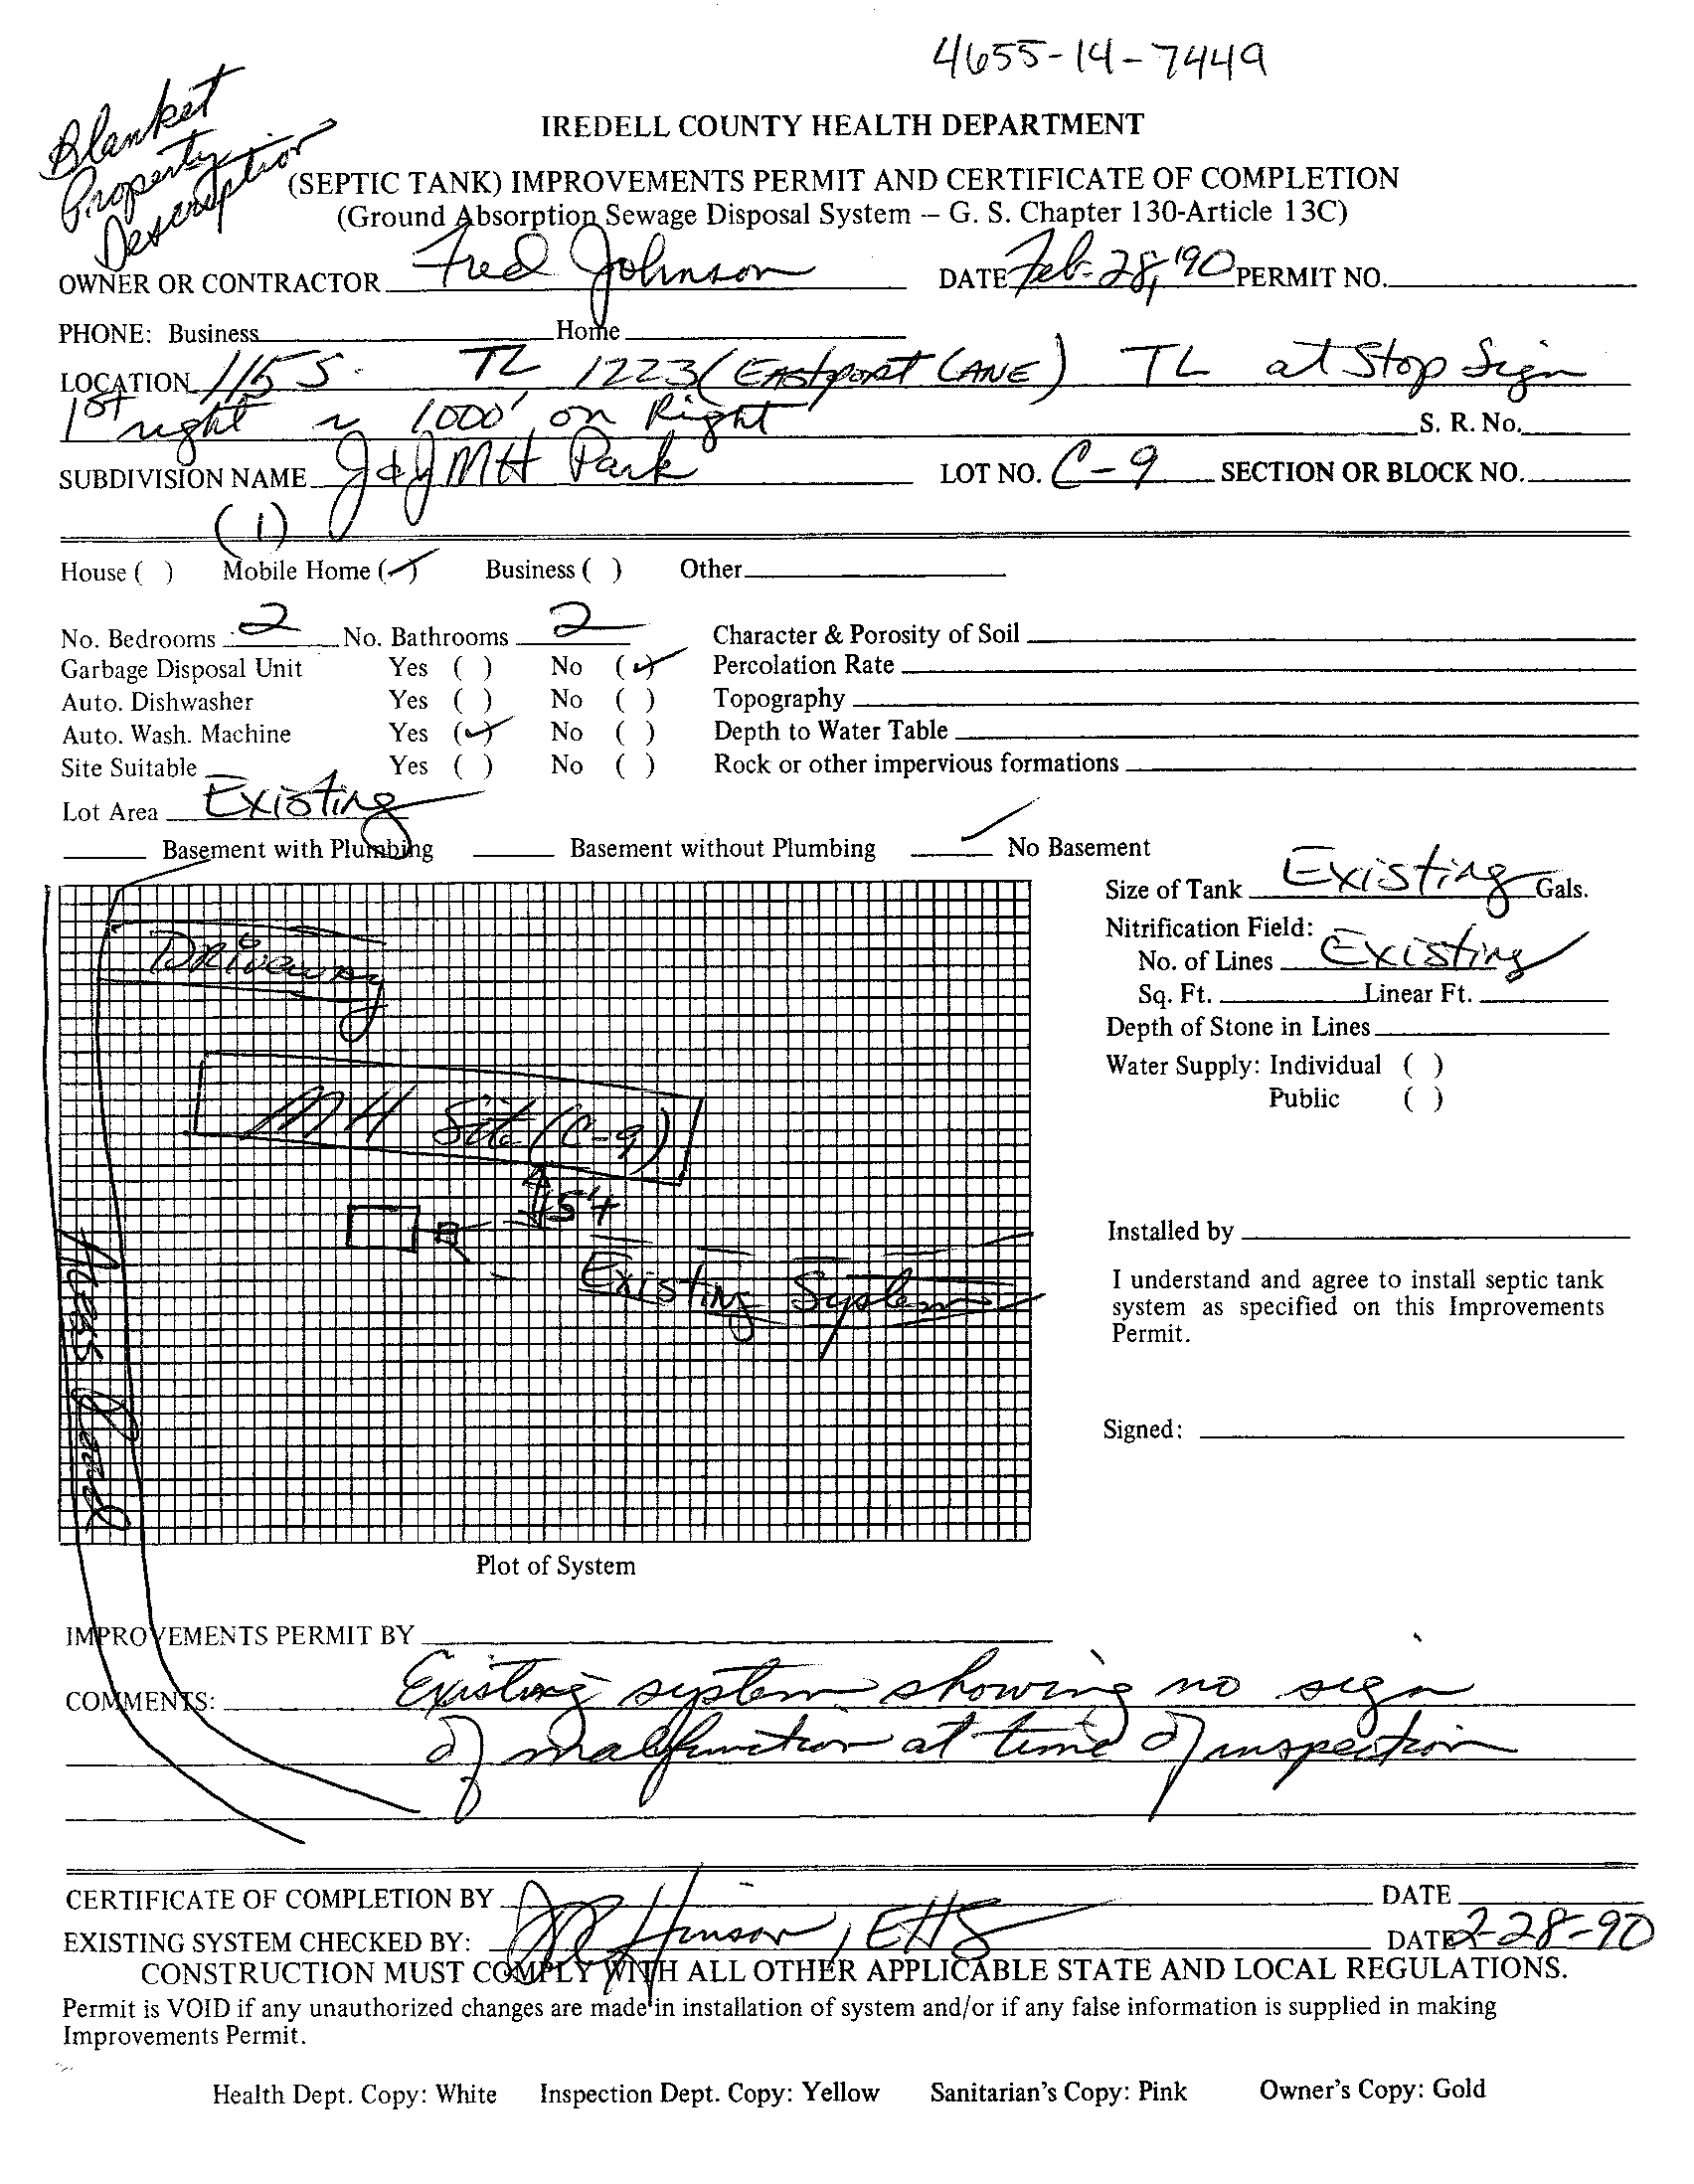 4655-14-7449
Blanket
Property
Description
IREDELL COUNTY HEALTH DEPARTMENT
(SEPTIC TANK) IMPROVEMENTS PERMIT AND CERTIFICATE OF COMPLETION
(Ground Absorption Sewage Disposal System – G. S. Chapter 130-Article 13C)
OWNER OR CONTRACTOR Fred Johnson DATE Feb. 28, '90 PERMIT NO.
PHONE: Business Home
LOCATION 115 S. TL 1223 (Eastport Lane) TL at Stop Sign
1st right ~ 1000' on Right S. R. No.
SUBDIVISION NAME J & J MH Park LOT NO. C-9 SECTION OR BLOCK NO.
(1)
House ( ) Mobile Home (✓) Business ( ) Other
No. Bedrooms 2 No. Bathrooms 2 Character & Porosity of Soil
Garbage Disposal Unit Yes ( ) No (✓) Percolation Rate
Auto. Dishwasher Yes ( ) No ( ) Topography
Auto. Wash. Machine Yes (✓) No ( ) Depth to Water Table
Site Suitable Yes ( ) No ( ) Rock or other impervious formations
Lot Area Existing
Basement with Plumbing Basement without Plumbing ✓ No Basement
Size of Tank Existing Gals.
Nitrification Field:
No. of Lines Existing
Sq. Ft. Linear Ft.
Depth of Stone in Lines
Water Supply: Individual ( )
Public ( )
Driveway
MH Site (C-9)
5'+
Existing System
Road
Installed by
I understand and agree to install septic tank
system as specified on this Improvements
Permit.
Signed:
Plot of System
IMPROVEMENTS PERMIT BY
COMMENTS: Existing system showing no sign
of malfunction at time of inspection
CERTIFICATE OF COMPLETION BY DATE
EXISTING SYSTEM CHECKED BY: Hinson, EHS DATE 2-28-90
CONSTRUCTION MUST COMPLY WITH ALL OTHER APPLICABLE STATE AND LOCAL REGULATIONS.
Permit is VOID if any unauthorized changes are made in installation of system and/or if any false information is supplied in making
Improvements Permit.
Health Dept. Copy: White Inspection Dept. Copy: Yellow Sanitarian's Copy: Pink Owner's Copy: Gold